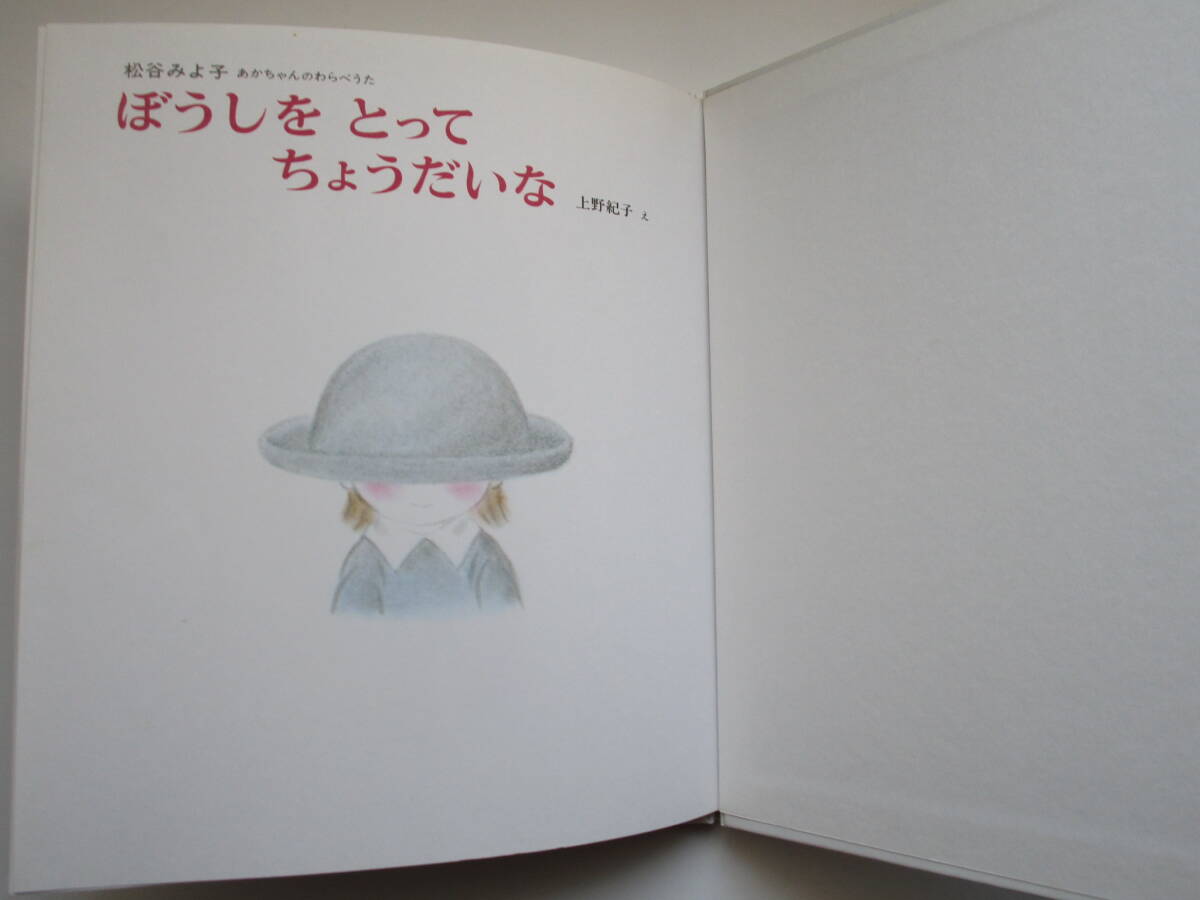 松谷みよ子 あかちゃんのわらべうた
ぼうしを とって
ちょうだいな
上野紀子 え